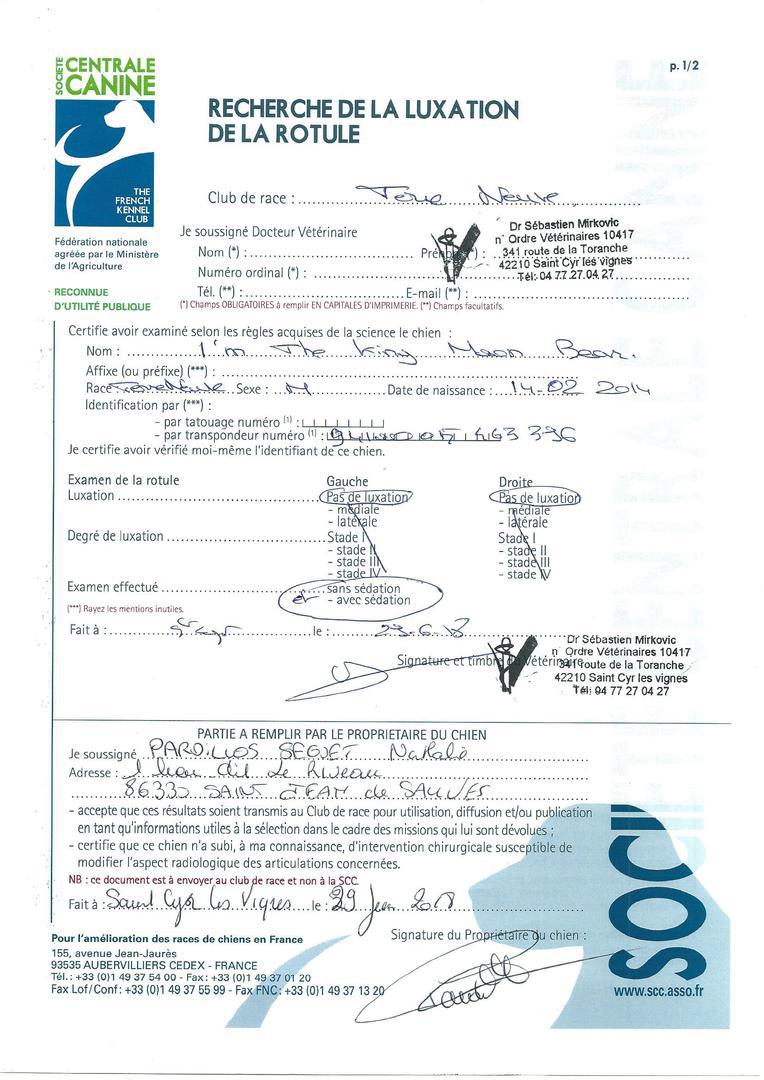 p. 1/2
SOCIÉTÉ CENTRALE CANINE
THE FRENCH KENNEL CLUB
Fédération nationale
agréée par le Ministère
de l'Agriculture
RECONNUE
D'UTILITÉ PUBLIQUE
RECHERCHE DE LA LUXATION
DE LA ROTULE
Club de race : Terre Neuve
Je soussigné Docteur Vétérinaire
Nom (*) : Prénom (*) :
Numéro ordinal (*) :
Tél. (**) : E-mail (**) :
Dr Sébastien Mirkovic
n° Ordre Vétérinaires 10417
341 route de la Toranche
42210 Saint Cyr les vignes
Tél: 04 77 27 04 27
(*) Champs OBLIGATOIRES à remplir EN CAPITALES D'IMPRIMERIE. (**) Champs facultatifs.
Certifie avoir examiné selon les règles acquises de la science le chien :
Nom : I'm The King Moon Bear.
Affixe (ou préfixe) (***) :
Race Terre Neuve Sexe : M Date de naissance : 14-02 2014
Identification par (***) :
- par tatouage numéro (1) :
- par transpondeur numéro (1) : 463 396
Je certifie avoir vérifié moi-même l'identifiant de ce chien.
Examen de la rotule Gauche Droite
Luxation Pas de luxation Pas de luxation
- médiale - médiale
- latérale - latérale
Degré de luxation Stade I Stade I
- stade II - stade II
- stade III - stade III
- stade IV - stade IV
Examen effectué sans sédation
- avec sédation
(***) Rayez les mentions inutiles.
Fait à : St Cyr le : 29-6-18
Signature et timbre du Vétérinaire
Dr Sébastien Mirkovic
n° Ordre Vétérinaires 10417
341 route de la Toranche
42210 Saint Cyr les vignes
Tél: 04 77 27 04 27
PARTIE A REMPLIR PAR LE PROPRIETAIRE DU CHIEN
Je soussigné PARDILLOS SEGUET Natalie
Adresse : lieu dit Le Riveau
86335 SAINT JEAN de SAUVES
- accepte que ces résultats soient transmis au Club de race pour utilisation, diffusion et/ou publication
en tant qu'informations utiles à la sélection dans le cadre des missions qui lui sont dévolues ;
- certifie que ce chien n'a subi, à ma connaissance, d'intervention chirurgicale susceptible de
modifier l'aspect radiologique des articulations concernées.
NB : ce document est à envoyer au club de race et non à la SCC.
Fait à : Saint Cyr les Vignes le : 29 Juin 2018
Signature du Propriétaire du chien :
Pour l'amélioration des races de chiens en France
155, avenue Jean-Jaurès
93535 AUBERVILLIERS CEDEX - FRANCE
Tél. : +33 (0)1 49 37 54 00 - Fax : +33 (0)1 49 37 01 20
Fax Lof/Conf : +33 (0)1 49 37 55 99 - Fax FNC : +33 (0)1 49 37 13 20
SOCI
www.scc.asso.fr